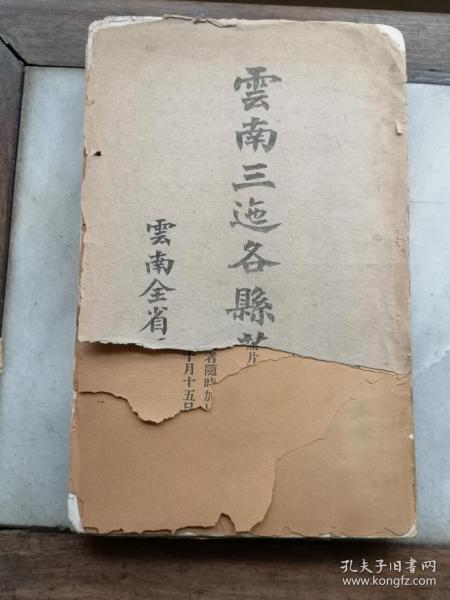 雲南三迤各縣
雲南全省
者隨時加
十月十五日
孔夫子旧书网
www.kongfz.com